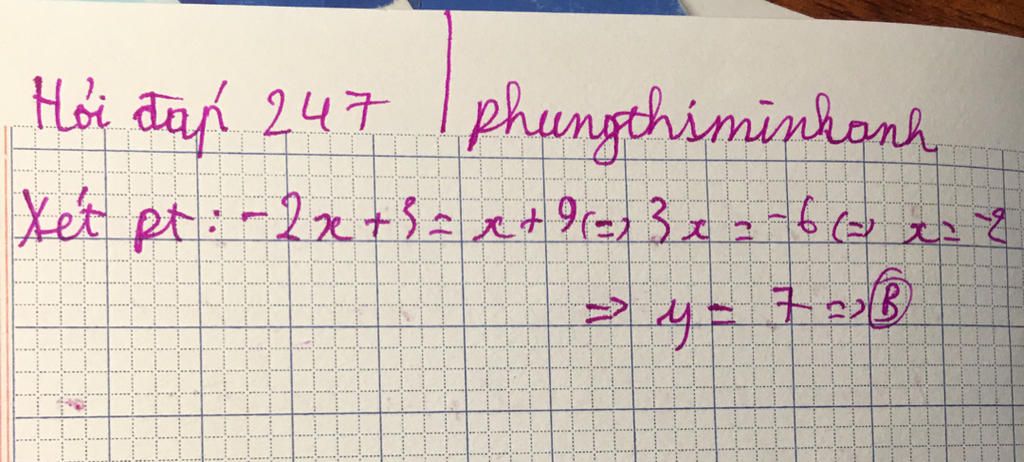 Hỏi đáp 247 | phungthiminhanh
Xét pt: -2x + 3 = x + 9 (=) 3x = -6 (=) x = -2
=> y = 7 => B